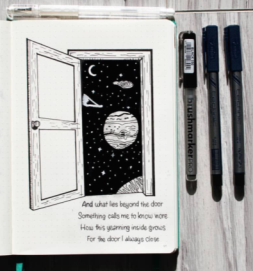 And what lies beyond the door
Something calls me to know more
How this yearning inside grows
For the door I always close
brushmarker